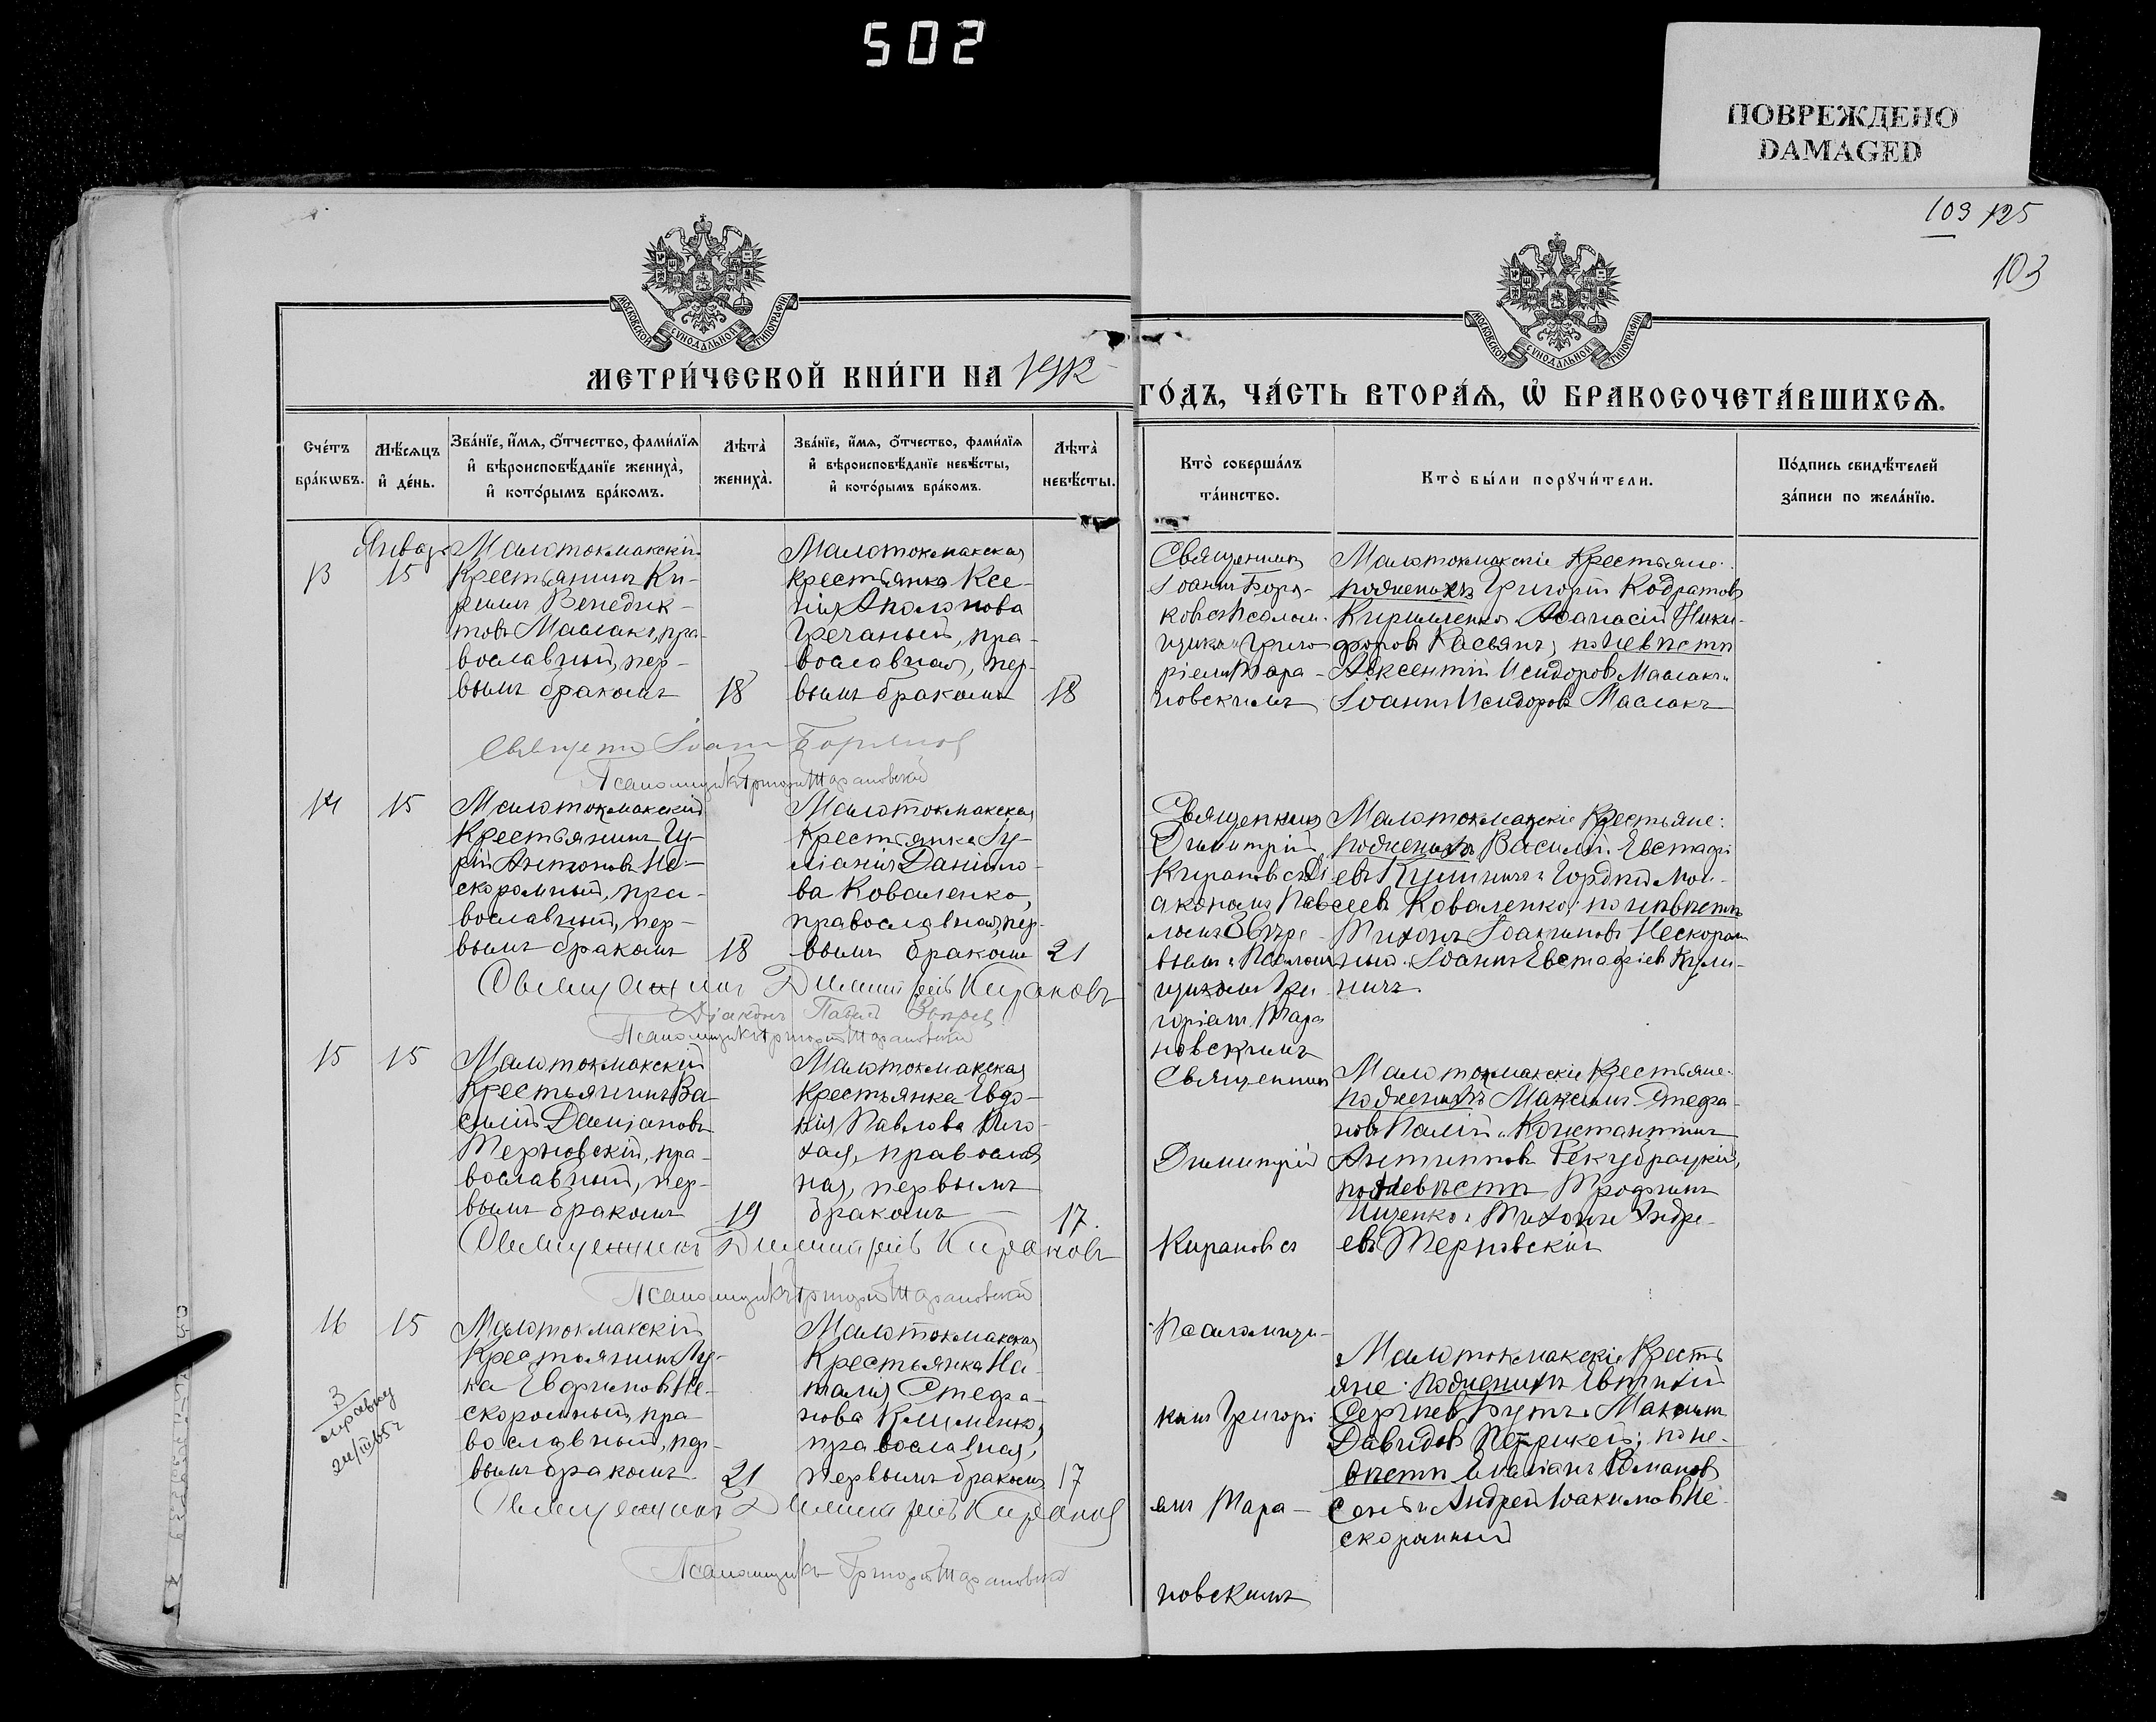 502
ПОВРЕЖДЕНО
DAMAGED
109 125
103
МОСКОВСКОЙ СУНОДАЛЬНОЙ ТИПОГРАФІИ
МОСКОВСКОЙ СУНОДАЛЬНОЙ ТИПОГРАФІИ
МЕТРИ́ЧЕСКОЙ КНИ́ГИ НА 1912
ГО́ДЪ, ЧА́СТЬ ВТОРА́Ѧ, Ѡ БРАКОСОЧЕТА́ВШИХСѦ.
Сче́тъ бра́кѡвъ.
Мѣ́сѧцъ и де́нь.
Зва́нїе, и́мѧ, ѻ́тчество, фами́лїѧ
и вѣроисповѣ́данїе жениха̀,
и кото́рымъ бра́комъ.
Лѣта̀ жениха̀.
Зва́нїе, и́мѧ, ѻ́тчество, фами́лїѧ
и вѣроисповѣ́данїе невѣ́сты,
и кото́рымъ бра́комъ.
Лѣта̀ невѣ́сты.
Кто̀ соверша́лъ
та́инство.
Кто̀ бы́ли порꙋчи́тели.
По́дпись свидѣ́телей
за́писи по жела́нїю.
Январь
13
15
Малотокмакскій
крестьянинъ Ки-
риллъ Венедик-
товъ Маслакъ, пра-
вославный, пер-
вымъ бракомъ
18
Малотокмакская
крестьянка Ксе-
нія Аполонова
Гречаный, пра-
вославная, пер-
вымъ бракомъ
18
Священникъ
Іоаннъ Боря-
ковъ съ Псалом-
щикомъ Григо
ріемъ Тара-
новскимъ
Малотокмакскіе крестьяне:
по женихѣ Григорій Кодратовъ
Кириленко и Афанасій Ники-
форовъ Касьянъ; по невѣстѣ
Авксентій Исидоровъ Маслакъ и
Іоаннъ Исидоровъ Маслакъ
Псаломщикъ Григорій Тарановскій
14
15
Малотокмакскій
крестьянинъ Гу-
рій Антоновъ Не-
скоромный, пра-
вославный, пер-
вымъ бракомъ
18
Малотокмакская
крестьянка Іу-
ліанія Данило-
ва Коваленко,
православная, пер-
вымъ бракомъ
21
Священникъ
Димитрій
Кирановъ съ Ді
акономъ Пав-
ломъ Звѣре-
вымъ и Псалом-
щикомъ Гри-
горіемъ Тара
новскимъ
Малотокмакскіе крестьяне:
по женихѣ Василій Евстафі
евъ Кулиничъ и Гордѣй Мои-
сеевъ Коваленко; по невѣстѣ
Тихонъ Іоакимовъ Нескором
ный и Іоаннъ Евстафіевъ Кули-
ничъ.
Священникъ Димитрій Кирановъ
Діаконъ Павелъ Звѣревъ
Псаломщикъ Григорій Тарановскій
15
15
Малотокмакскій
крестьянинъ Ва-
силій Даміановъ
Терновскій, пра-
вославный, пер-
вымъ бракомъ
19
Малотокмакская
крестьянка Евдо-
кія Павлова
православ
ная, первымъ
бракомъ
17.
Священникъ
Димитрій
Кирановъ съ
Псаломщи-
комъ Григорі
емъ Тара-
новскимъ
Малотокмакскіе крестьяне:
по женихѣ Максимъ Стефа-
новъ Палій и Константинъ
Антиповъ
по невѣстѣ Трофимъ
Ищенко и Тихонъ Андре-
евъ Терновскій
Священникъ Димитрій Кирановъ
Псаломщикъ Григорій Тарановскій
16
15
Малотокмакскій
крестьянинъ Лу-
ка Евфимовъ Не-
скоромный, пра-
вославный, пер-
вымъ бракомъ
21
Малотокмакская
крестьянка На-
талія Стефа-
нова Клименко,
православная,
первымъ бракомъ
17
Малотокмакскіе кресть
яне: по женихѣ Евтихій
Сергіевъ и Максимъ
Давидовъ по не-
вѣстѣ Романовъ
и Андрей Іоакимовъ Не-
скоромный
справку
Священникъ Димитрій Кирановъ
Псаломщикъ Григорій Тарановскій